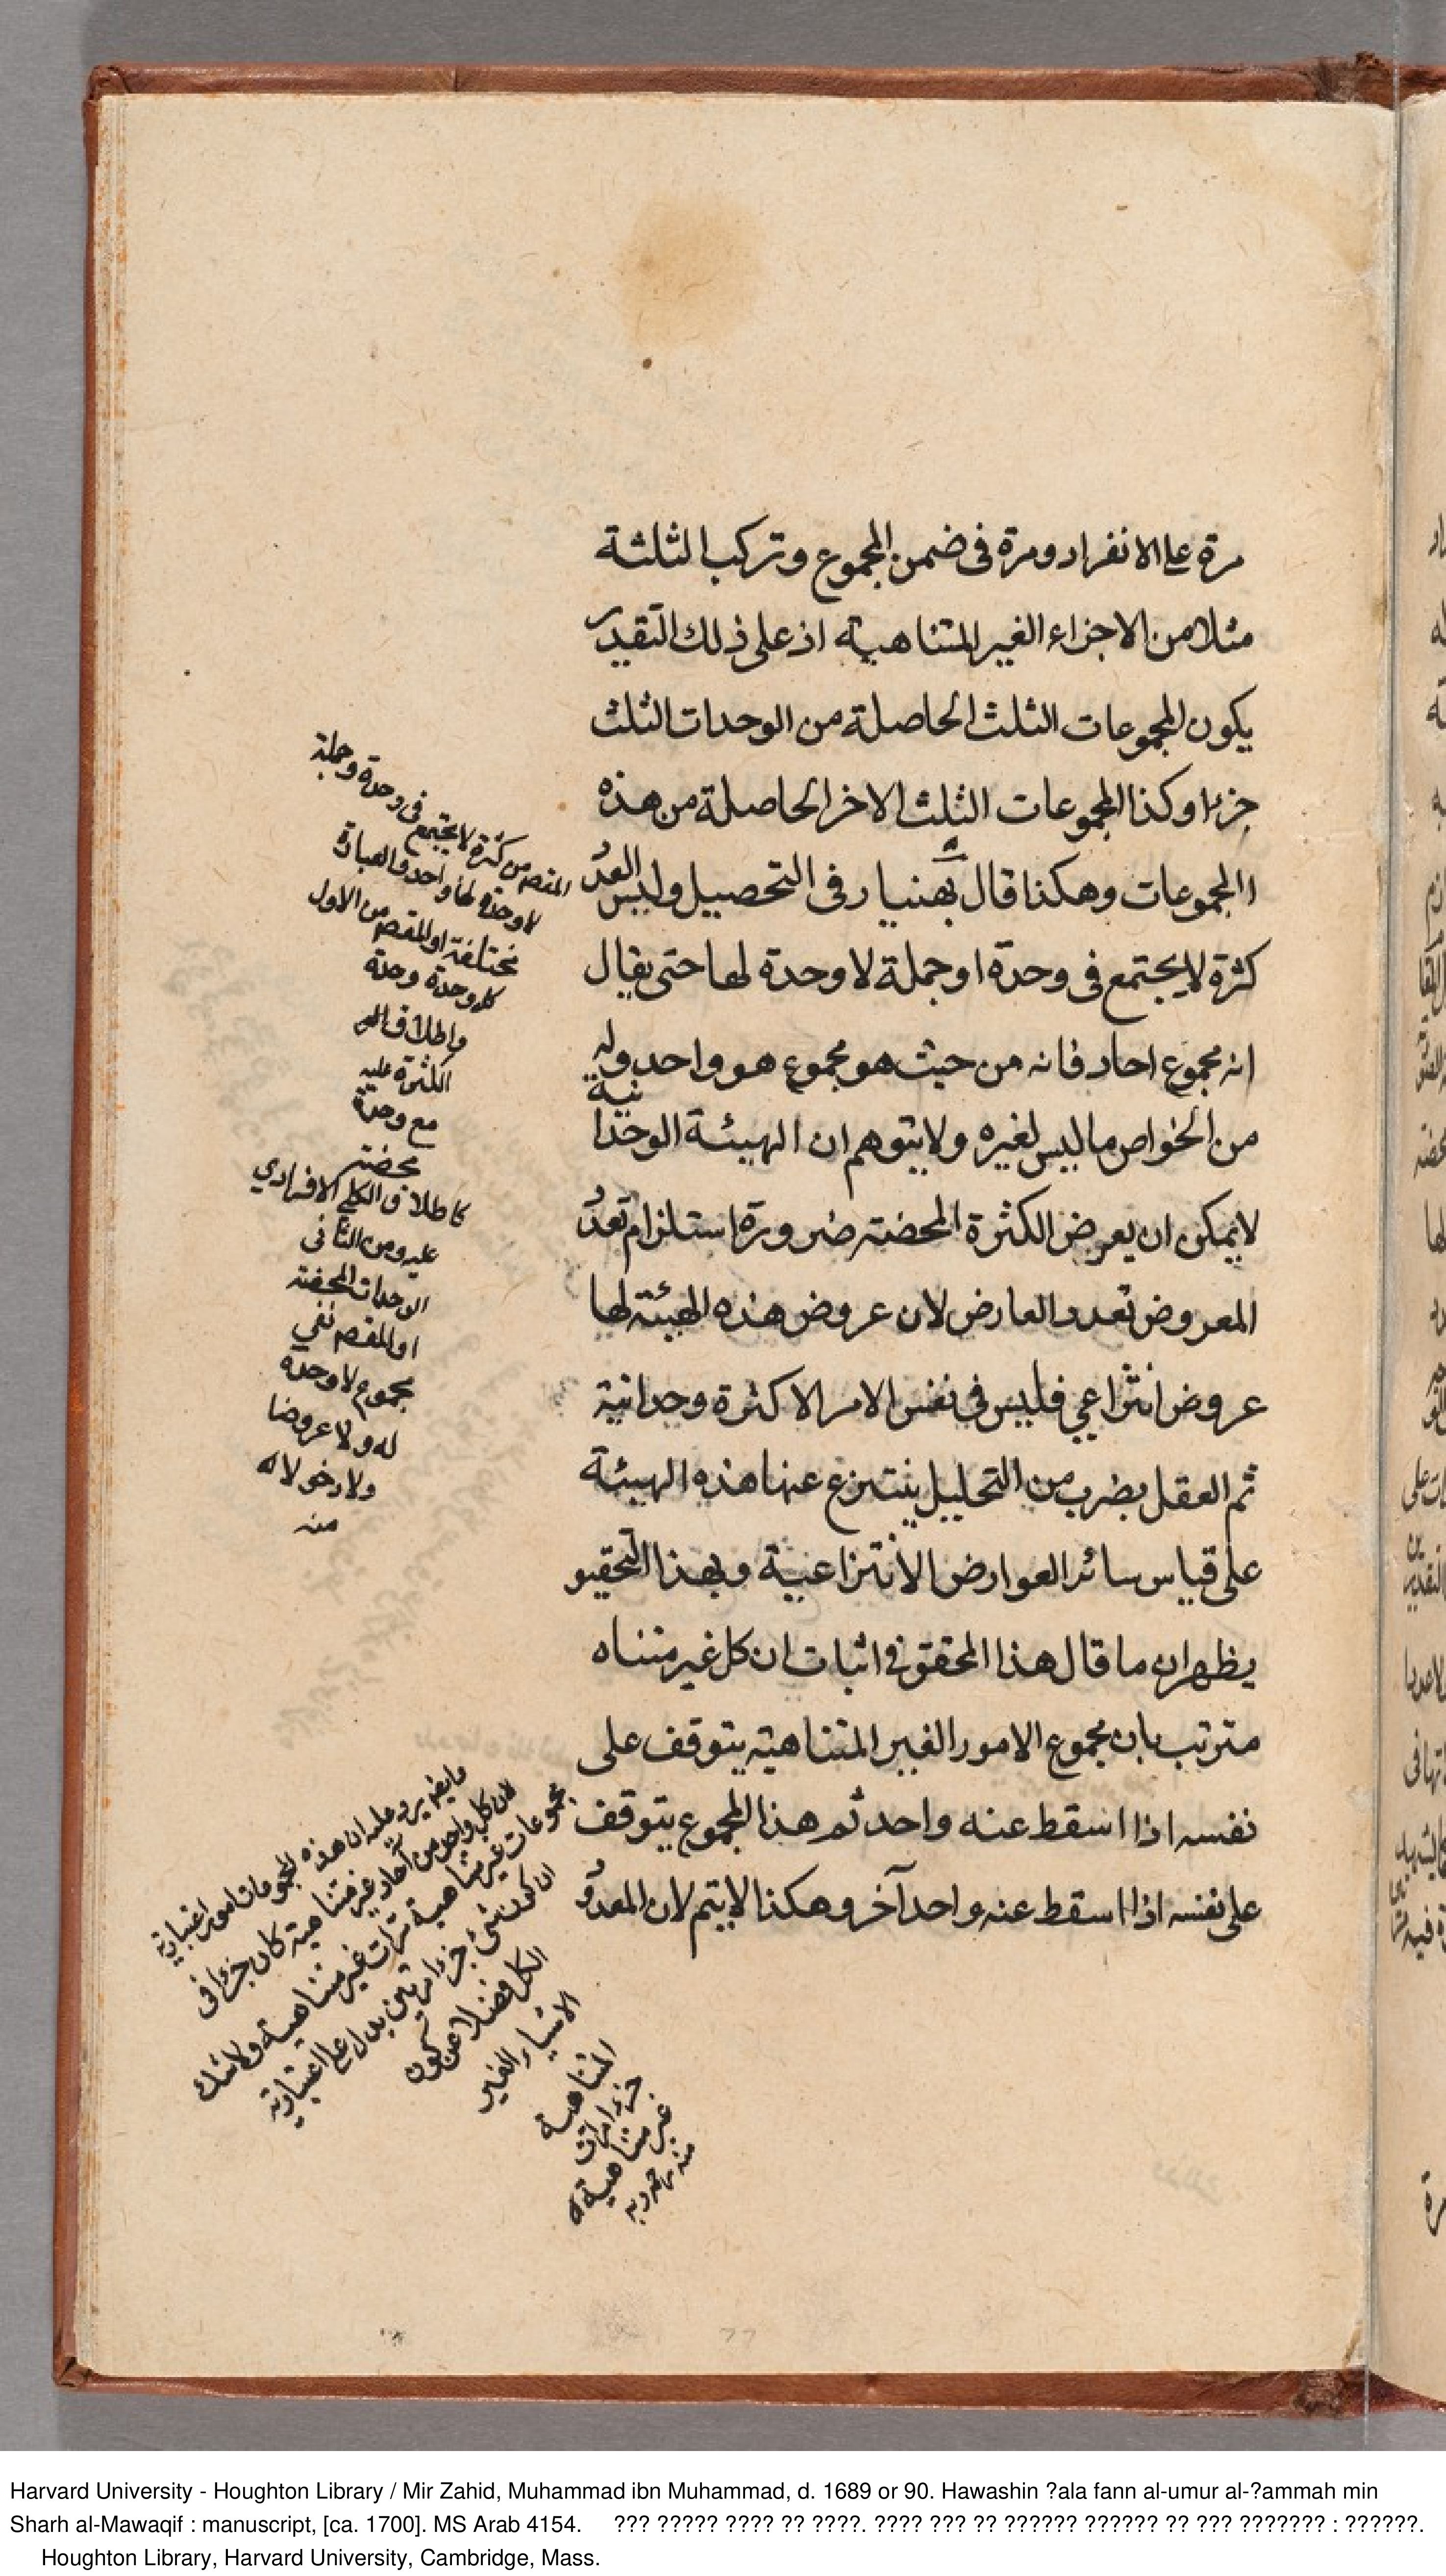 مرة على الانفراد ومرة فى ضمن المجموع وتركب الثلثة
مثلا من الاجزاء الغير المتناهية اذ على ذلك التقدير
يكون المجموعات الثلث الحاصلة من الوحدات الثلث
جزءا وكذا المجموعات الثلث الاخر الحاصلة من هذه
المجموعات وهكذا قال بهنيار فى التحصيل وليس العدد
كثرة لا يجتمع فى وحدة او جملة لا وحدة لها حتى يقال
انه مجموع احاد فانه من حيث هو مجموع هو واحد وله
من الخواص ما ليس لغيره ولا يتوهم ان الهيئة الوحدانية
لا يمكن ان يعرض الكثرة المحضة ضرورة استلزام تعدد
المعروض تعدد العارض لان عروض هذه الهيئة لها
عروض انتزاعي فليس في نفس الامر الا كثرة وحدانية
ثم العقل بضرب من التحليل ينتزع عنها هذه الهيئة
على قياس سائر العوارض الانتزاعية وبهذا التحقيق
يظهر ان ما قال هذا المحقق في اثبات ان كل غير متناه
مترتب بان مجموع الامور الغير المتناهية يتوقف على
نفسه اذا اسقط عنه واحد ثم هذا المجموع يتوقف
على نفسه اذا اسقط عنه واحد آخر وهكذا لا يتم لان المعدود
من كثرة لا يجتمع فى وحدة وجملة
لا وحدة لها واحد والعبارة
مختلفة او المقصم من الاول
كل وحدة وحدة
واطلاق
الكثرة عليه
مع وحدة
محضة
كاطلاق الكلي الافرادي
عليه ومن الثاني
الوحدات المحضة
او المقصم نفي
مجموع لا وحدة
له ولا عروضا
ولا دخولا
منه
عليه ان هذه المجموعات امور اعتبارية
لان كل واحد من آحاد غير متناهية كان جزءا فى
مجموعات غير متناهية مرات غير متناهية ولا شك
ان كون شئ جزءا مرتين يدل على اعتبارية
الكل فضلا عن كون
الاشياء الغير
المتناهية
جزءا مرات
غير متناهية
منه
Harvard University - Houghton Library / Mir Zahid, Muhammad ibn Muhammad, d. 1689 or 90. Hawashin ?ala fann al-umur al-?ammah min
Sharh al-Mawaqif : manuscript, [ca. 1700]. MS Arab 4154. ??? ????? ???? ?? ????. ???? ??? ?? ?????? ?????? ?? ??? ??????? : ??????.
Houghton Library, Harvard University, Cambridge, Mass.